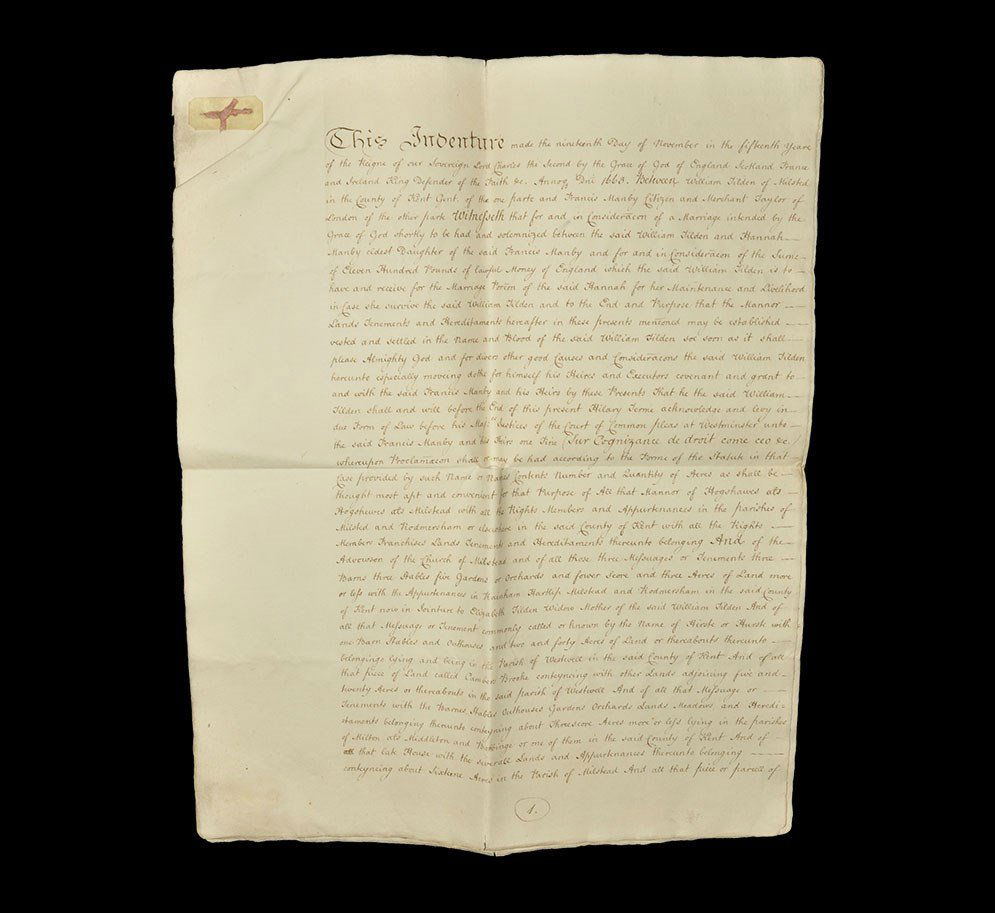 This Indenture made the nineteenth Day of November in the fifteenth Yeare
of the Reigne of our Sovereign Lord Charles the Second by the Grace of God of England Scotland France
and Ireland King Defender of the Faith &c. Annoq Dni 1663. Between William Tilden of Milsted
in the County of Kent Gent. of the one parte and Francis Manby Citizen and Merchant Taylor of
London of the other parte Witnesseth that for and in Consideracon of a Marriage intended by the
Grace of God shortly to be had and solemnized between the said William Tilden and Hannah
Manby eldest Daughter of the said Francis Manby and for and in Consideracon of the Sume
of Eleven Hundred Pounds of lawful Money of England which the said William Tilden is to
have and receive for the Marriage Porcon of the said Hannah for her Maintenance and Livelihood
in Case she survive the said William Tilden and to the End and Purpose that the Mannor
Lands Tenements and Hereditaments hereafter in these presents menconed may be established
vested and settled in the Name and Blood of the said William Tilden soe soon as it shall
please Almighty God and for divers other good Causes and Consideracons the said William Tilden
hereunto especially moveing doth for himself his Heires and Executors covenant and grant to
and with the said Francis Manby and his Heirs by these Presents That he the said William
Tilden shall and will before the End of this present Hilary Terme acknowledge and levy in
due Form of Law before his Majts Justices of the Court of Common pleas at Westminster unto
the said Francis Manby and his Heirs one Fine Sur Cognizance de droit come ceo &c.
whereupon Proclamacon shall or may be had according to the Forme of the Statute in that
Case provided by such Name or Names Contents Number and Quantity of Acres as shall be
thought most apt and convenient for that Purpose of All that Mannor of Hogshawes als
Hogshewes als Milstead with all the Rights Members and Appurtenances in the parishes of
Milsted and Rodmersham or elsewhere in the said County of Kent with all the Rights
Members Franchises Lands Tenements and Hereditaments thereunto belonging And of the
Advowson of the Church of Milstead and of all those three Messuages or Tenements three
Barns three Stables five Gardens or Orchards and fower Score and three Acres of Land more
or less with the Appurtenances in Rainham Hartlip Milstead and Rodmersham in the said County
of Kent now in Jointure to Elizabeth Tilden Widow Mother of the said William Tilden And of
all that Messuage or Tenement commonly called or known by the Name of Hirste or Hurste with
one Barn Stables and Outhouses and two and forty Acres of Land or thereabouts thereunto
belonging lying and being in the Parish of Westwell in the said County of Kent And of all
that piece of Land called Cambers Brooke conteyning with other Lands adjoining five and
twenty Acres or thereabouts in the said parish of Westwell And of all that Messuage or
Tenements with the Barnes Stables Outhouses Gardens Orchards Lands Meadows and Heredi-
taments belonging thereunto conteyning about Threescore Acres more or less lying in the parishes
of Milton als Middleton and or one of them in the said County of Kent And of
all that late House with the severall Lands and Appurtenances thereunto belonging
conteyning about Sixteene Acres in the Parish of Milstead And all that piece or parcell of
1.